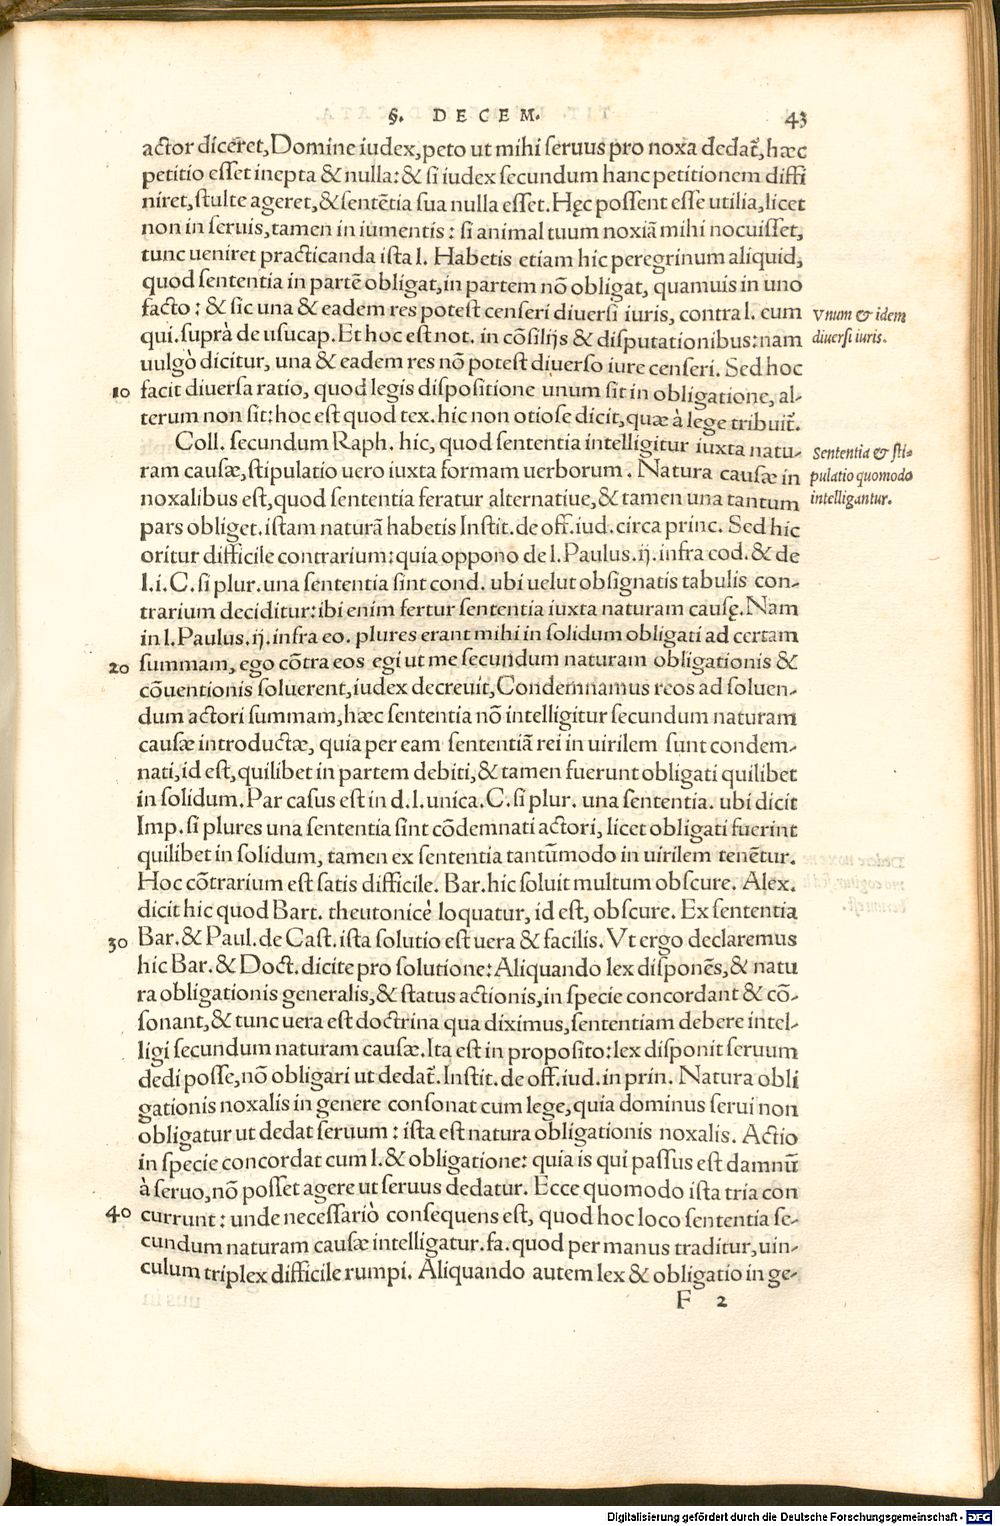 §. DECEM. 43
actor diceret, Domine iudex, peto ut mihi seruus pro noxa dedat̃, hæc
petitio esset inepta & nulla: & si iudex secundum hanc petitionem diffi
niret, stulte ageret, & sentētia sua nulla esset. Hęc possent esse utilia, licet
non in seruis, tamen in iumentis: si animal tuum noxiā mihi nocuisset,
tunc ueniret practicanda ista l. Habetis etiam hic peregrinum aliquid,
quod sententia in partē obligat, in partem nō obligat, quamuis in uno
facto: & sic una & eadem res potest censeri diuersi iuris, contra l. eum
Vnum & idem
qui. suprà de usucap. Et hoc est not. in cōsilijs & disputationibus: nam
diuersi iuris.
uulgò dicitur, una & eadem res nō potest diuerso iure censeri. Sed hoc
10 facit diuersa ratio, quod legis dispositione unum sit in obligatione, al-
terum non sit: hoc est quod tex. hic non otiose dicit, quæ à lege tribuit̃.
Coll. secundum Raph. hic, quod sententia intelligitur iuxta natu-
Sententia & sti-
ram causæ, stipulatio uero iuxta formam uerborum. Natura causæ in
pulatio quomodo
noxalibus est, quod sententia feratur alternatiue, & tamen una tantum
intelligantur.
pars obliget. istam naturā habetis Instit. de off. iud. circa princ. Sed hic
oritur difficile contrarium: quia oppono de l. Paulus. ij. infra cod. & de
l. i. C. si plur. una sententia sint cond. ubi uelut obsignatis tabulis con-
trarium deciditur: ibi enim fertur sententia iuxta naturam causę. Nam
in l. Paulus. ij. infra eo. plures erant mihi in solidum obligati ad certam
20 summam, ego cōtra eos egi ut me secundum naturam obligationis &
cōuentionis soluerent, iudex decreuit, Condemnamus reos ad soluen-
dum actori summam, hæc sententia nō intelligitur secundum naturam
causæ introductæ, quia per eam sententiā rei in uirilem sunt condem-
nati, id est, quilibet in partem debiti, & tamen fuerunt obligati quilibet
in solidum. Par casus est in d. l. unica. C. si plur. una sententia. ubi dicit
Imp. si plures una sententia sint cōdemnati actori, licet obligati fuerint
quilibet in solidum, tamen ex sententia tantūmodo in uirilem tenētur.
Hoc cōtrarium est satis difficile. Bar. hic soluit multum obscure. Alex.
dicit hic quod Bart. theutonicè loquatur, id est, obscure. Ex sententia
30 Bar. & Paul. de Cast. ista solutio est uera & facilis. Vt ergo declaremus
hic Bar. & Doct. dicite pro solutione: Aliquando lex disponēs, & natu
ra obligationis generalis, & status actionis, in specie concordant & cō-
sonant, & tunc uera est doctrina qua diximus, sententiam debere intel-
ligi secundum naturam causæ. Ita est in proposito: lex disponit seruum
dedi posse, nō obligari ut dedat̃. Instit. de off. iud. in prin. Natura obli
gationis noxalis in genere consonat cum lege, quia dominus serui non
obligatur ut dedat seruum: ista est natura obligationis noxalis. Actio
in specie concordat cum l. & obligatione: quia is qui passus est damnū
à seruo, nō posset agere ut seruus dedatur. Ecce quomodo ista tria con
40 currunt: unde necessariò consequens est, quod hoc loco sententia se-
cundum naturam causæ intelligatur. fa. quod per manus traditur, uin-
culum triplex difficile rumpi. Aliquando autem lex & obligatio in ge-
F 2
Digitalisierung gefördert durch die Deutsche Forschungsgemeinschaft - DFG